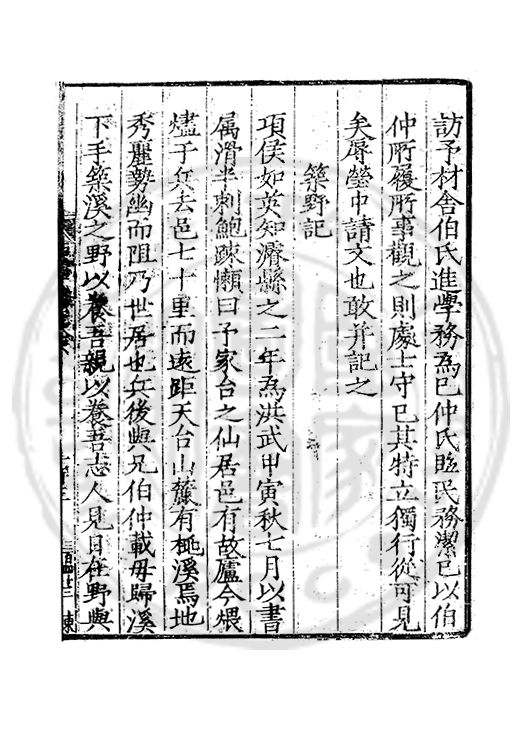 訪予材舍伯氏進學務爲巳仲氏臨民務潔巳以伯
仲所履所事觀之則處士守巳其特立獨行從可見
矣辱瑩中請文也敢并記之
築野記
項侯如英知濬縣之二年爲洪武甲寅秋七月以書
属滑半刺鮑踈懶曰予家台之仙居邑有故廬今煨
燼于兵去邑七十里而遠距天台山麓有 溪焉地
秀麗勢幽而阻乃世居也兵後與兄伯仲載毋歸溪
下手築溪之野以養吾親以養吾志人見目在野與